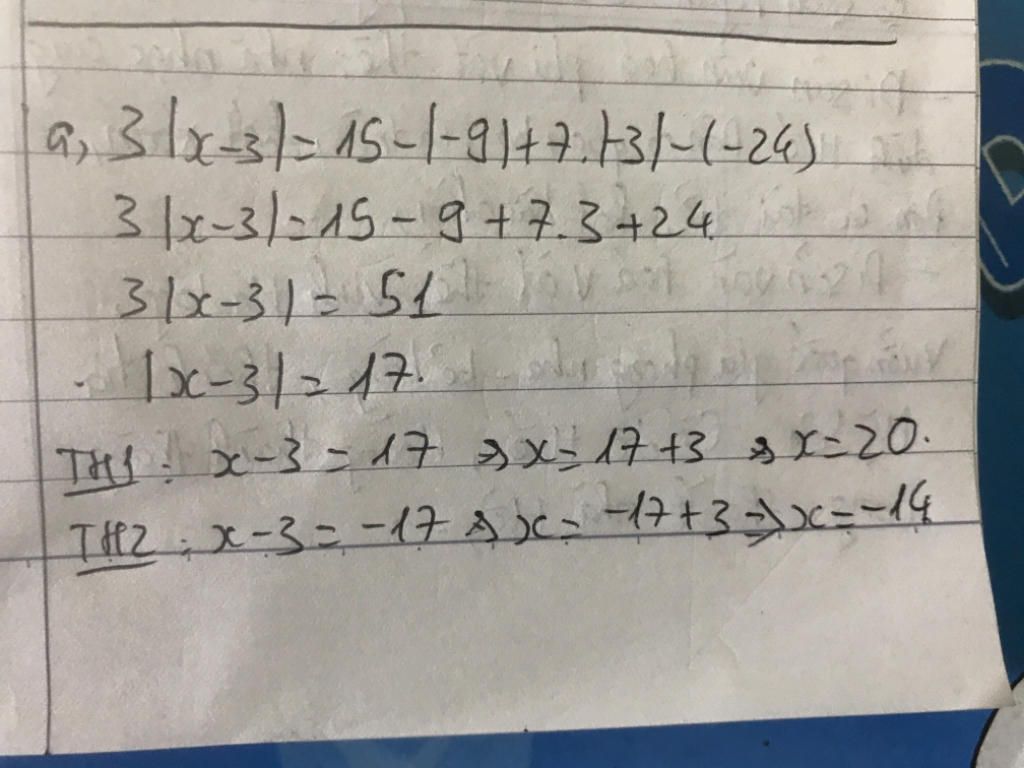 a, 3|x-3|= 15-|-9|+7.|-3|-(-24)
3|x-3|=15-9+7.3+24
3|x-3| = 51
|x-3|=17.
TH1: x-3 = 17 => x= 17+3 => x=20.
TH2: x-3 = -17 => x= -17+3 => x=-14